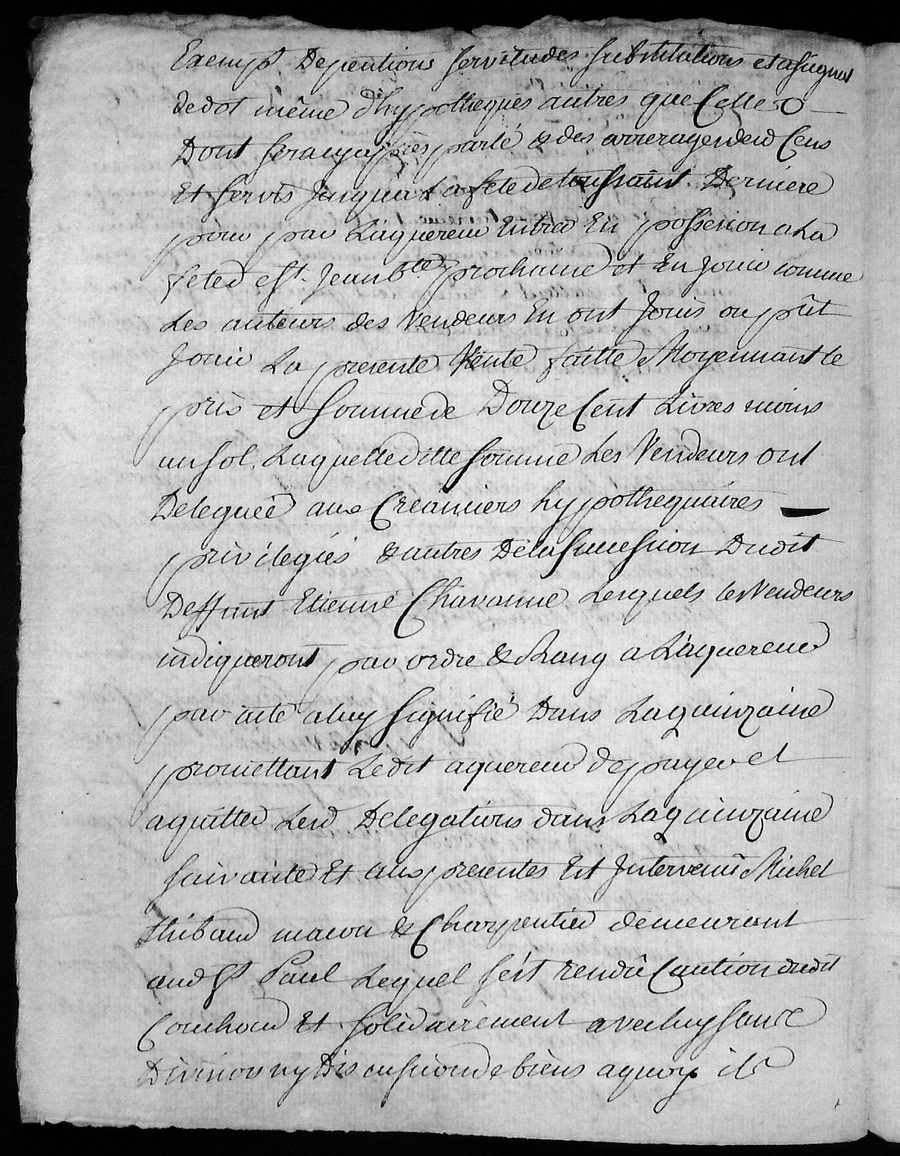 Exempt Depentions servitudes substitutions et assignat
de dot même d'hypotheques autres que Celles
Dont sera cy apres parlé & des arrerages desd Cens
Et servis Jusqua La fete de toussaint Derniere
pour par Laquereur Entrer En possession a La
fete de st. Jean Bte prochaine et En Jouir comme
Les auteurs des Vendeurs En ont Joüis ou pût
Jouir La presente Vente faitte Moyennant le
prix et Somme de Douze Cent Livres moins
un sol, Laquelle ditte somme Les Vendeurs ont
Deleguée aux Creanciers hypothequaires
privilegiés & autres De la succession Dudit
Deffunt Etienne Chavanne Lesquels les Vendeurs
indiqueront par ordre & Rang a L'aquereur
par acte a luy signifié Dans La quinzaine
promettant Ledit aquereur de payer et
aquitter Lesd Delegations dans La quinzaine
suivante Et aux presentes Est Intervenû Michel
thibaud macon & Charpentier demeurant
aud St Paul Lequel s'est rendû Caution dudit
Couhoud Et solidairement avec luy sans
Division ny Discussion de biens a quoy ils